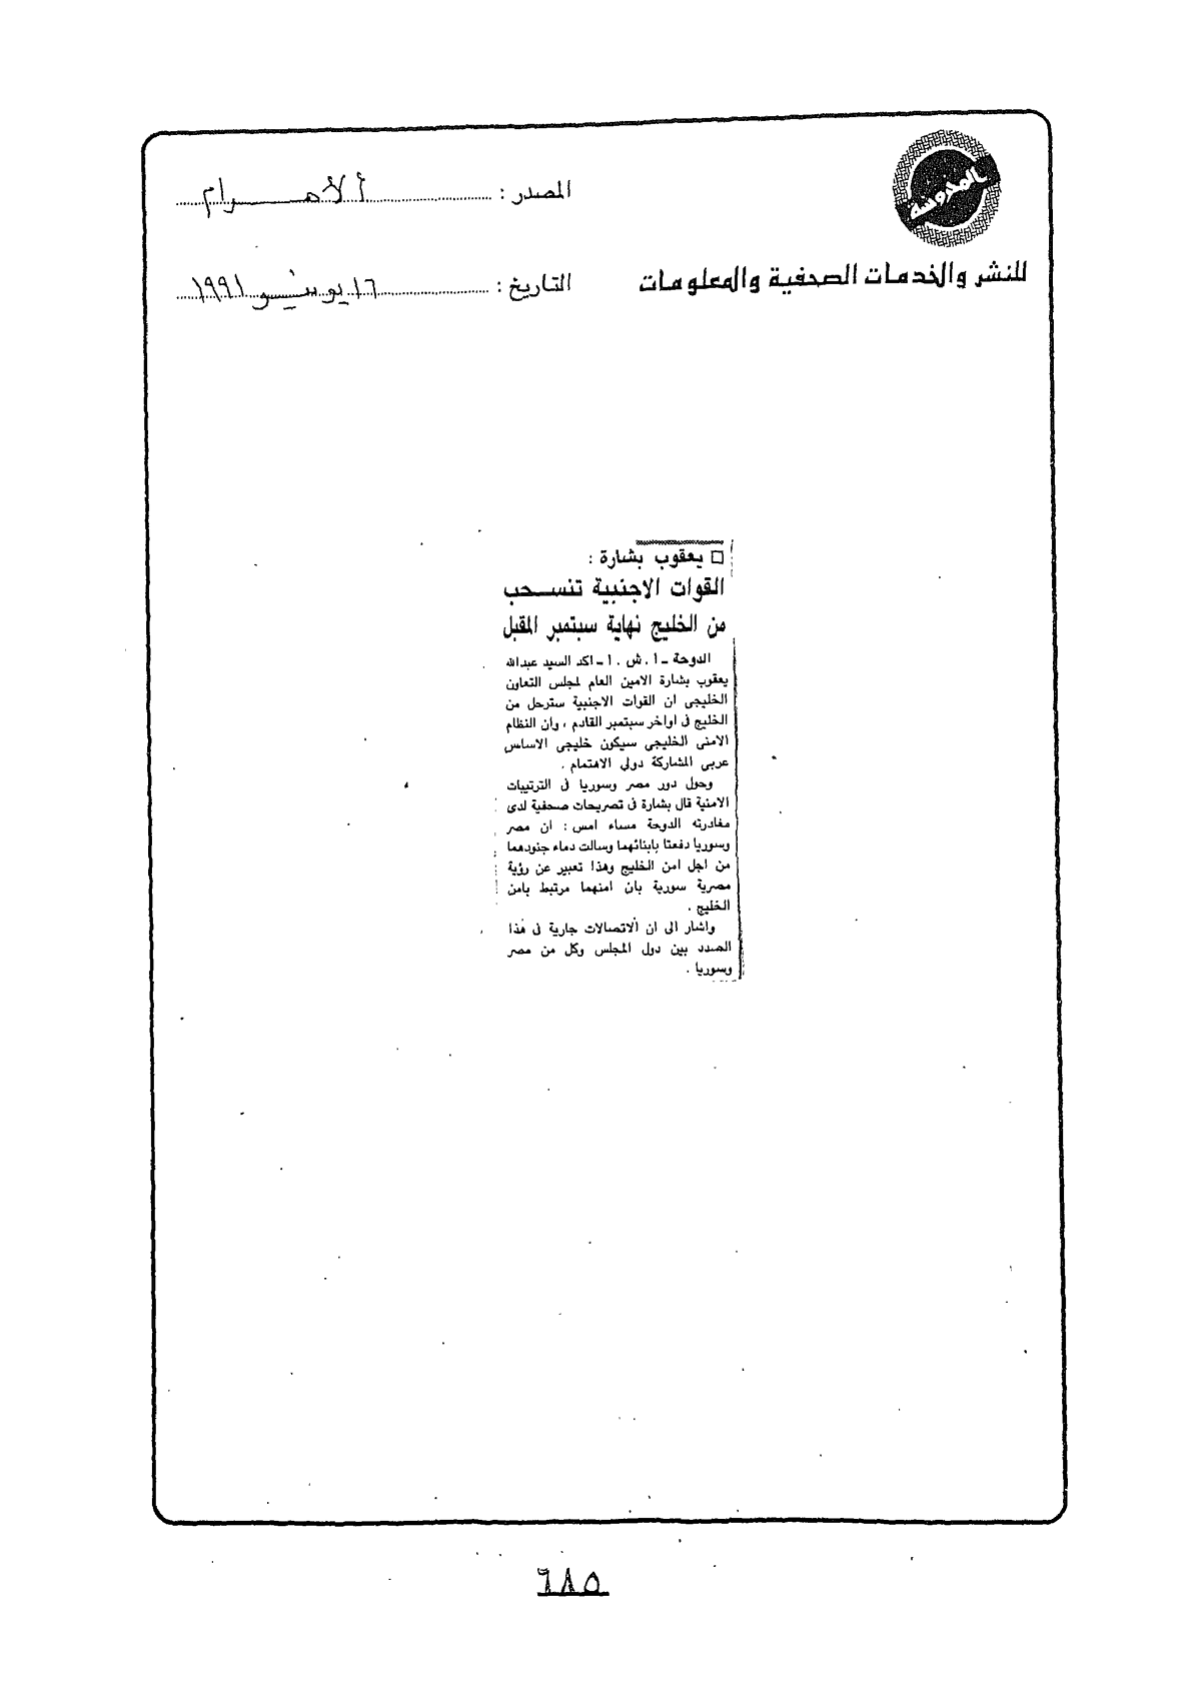 المحروسة
المصدر : ألأهـــرام
للنشر والخدمات الصحفية والمعلومات
التاريخ : ١٦ يونيو ١٩٩١
□ يعقوب بشارة :
القوات الاجنبية تنســحب
من الخليج نهاية سبتمبر المقبل
الدوحة ـ ا . ش . ا ـ اكد السيد عبدالله
يعقوب بشارة الامين العام لمجلس التعاون
الخليجى ان القوات الاجنبية سترحل من
الخليج فى اواخر سبتمبر القادم ، وان النظام
الامنى الخليجى سيكون خليجى الاساس
عربى المشاركة دولى الاهتمام .
وحول دور مصر وسوريا فى الترتيبات
الامنية قال بشارة فى تصريحات صحفية لدى
مغادرته الدوحة مساء امس : ان مصر
وسوريا دفعتا بابنائهما وسالت دماء جنودهما
من اجل امن الخليج وهذا تعبير عن رؤية
مصرية سورية بان امنهما مرتبط بامن
الخليج .
واشار الى ان الاتصالات جارية فى هذا
الصدد بين دول المجلس وكل من مصر
وسوريا .
٦٨٥